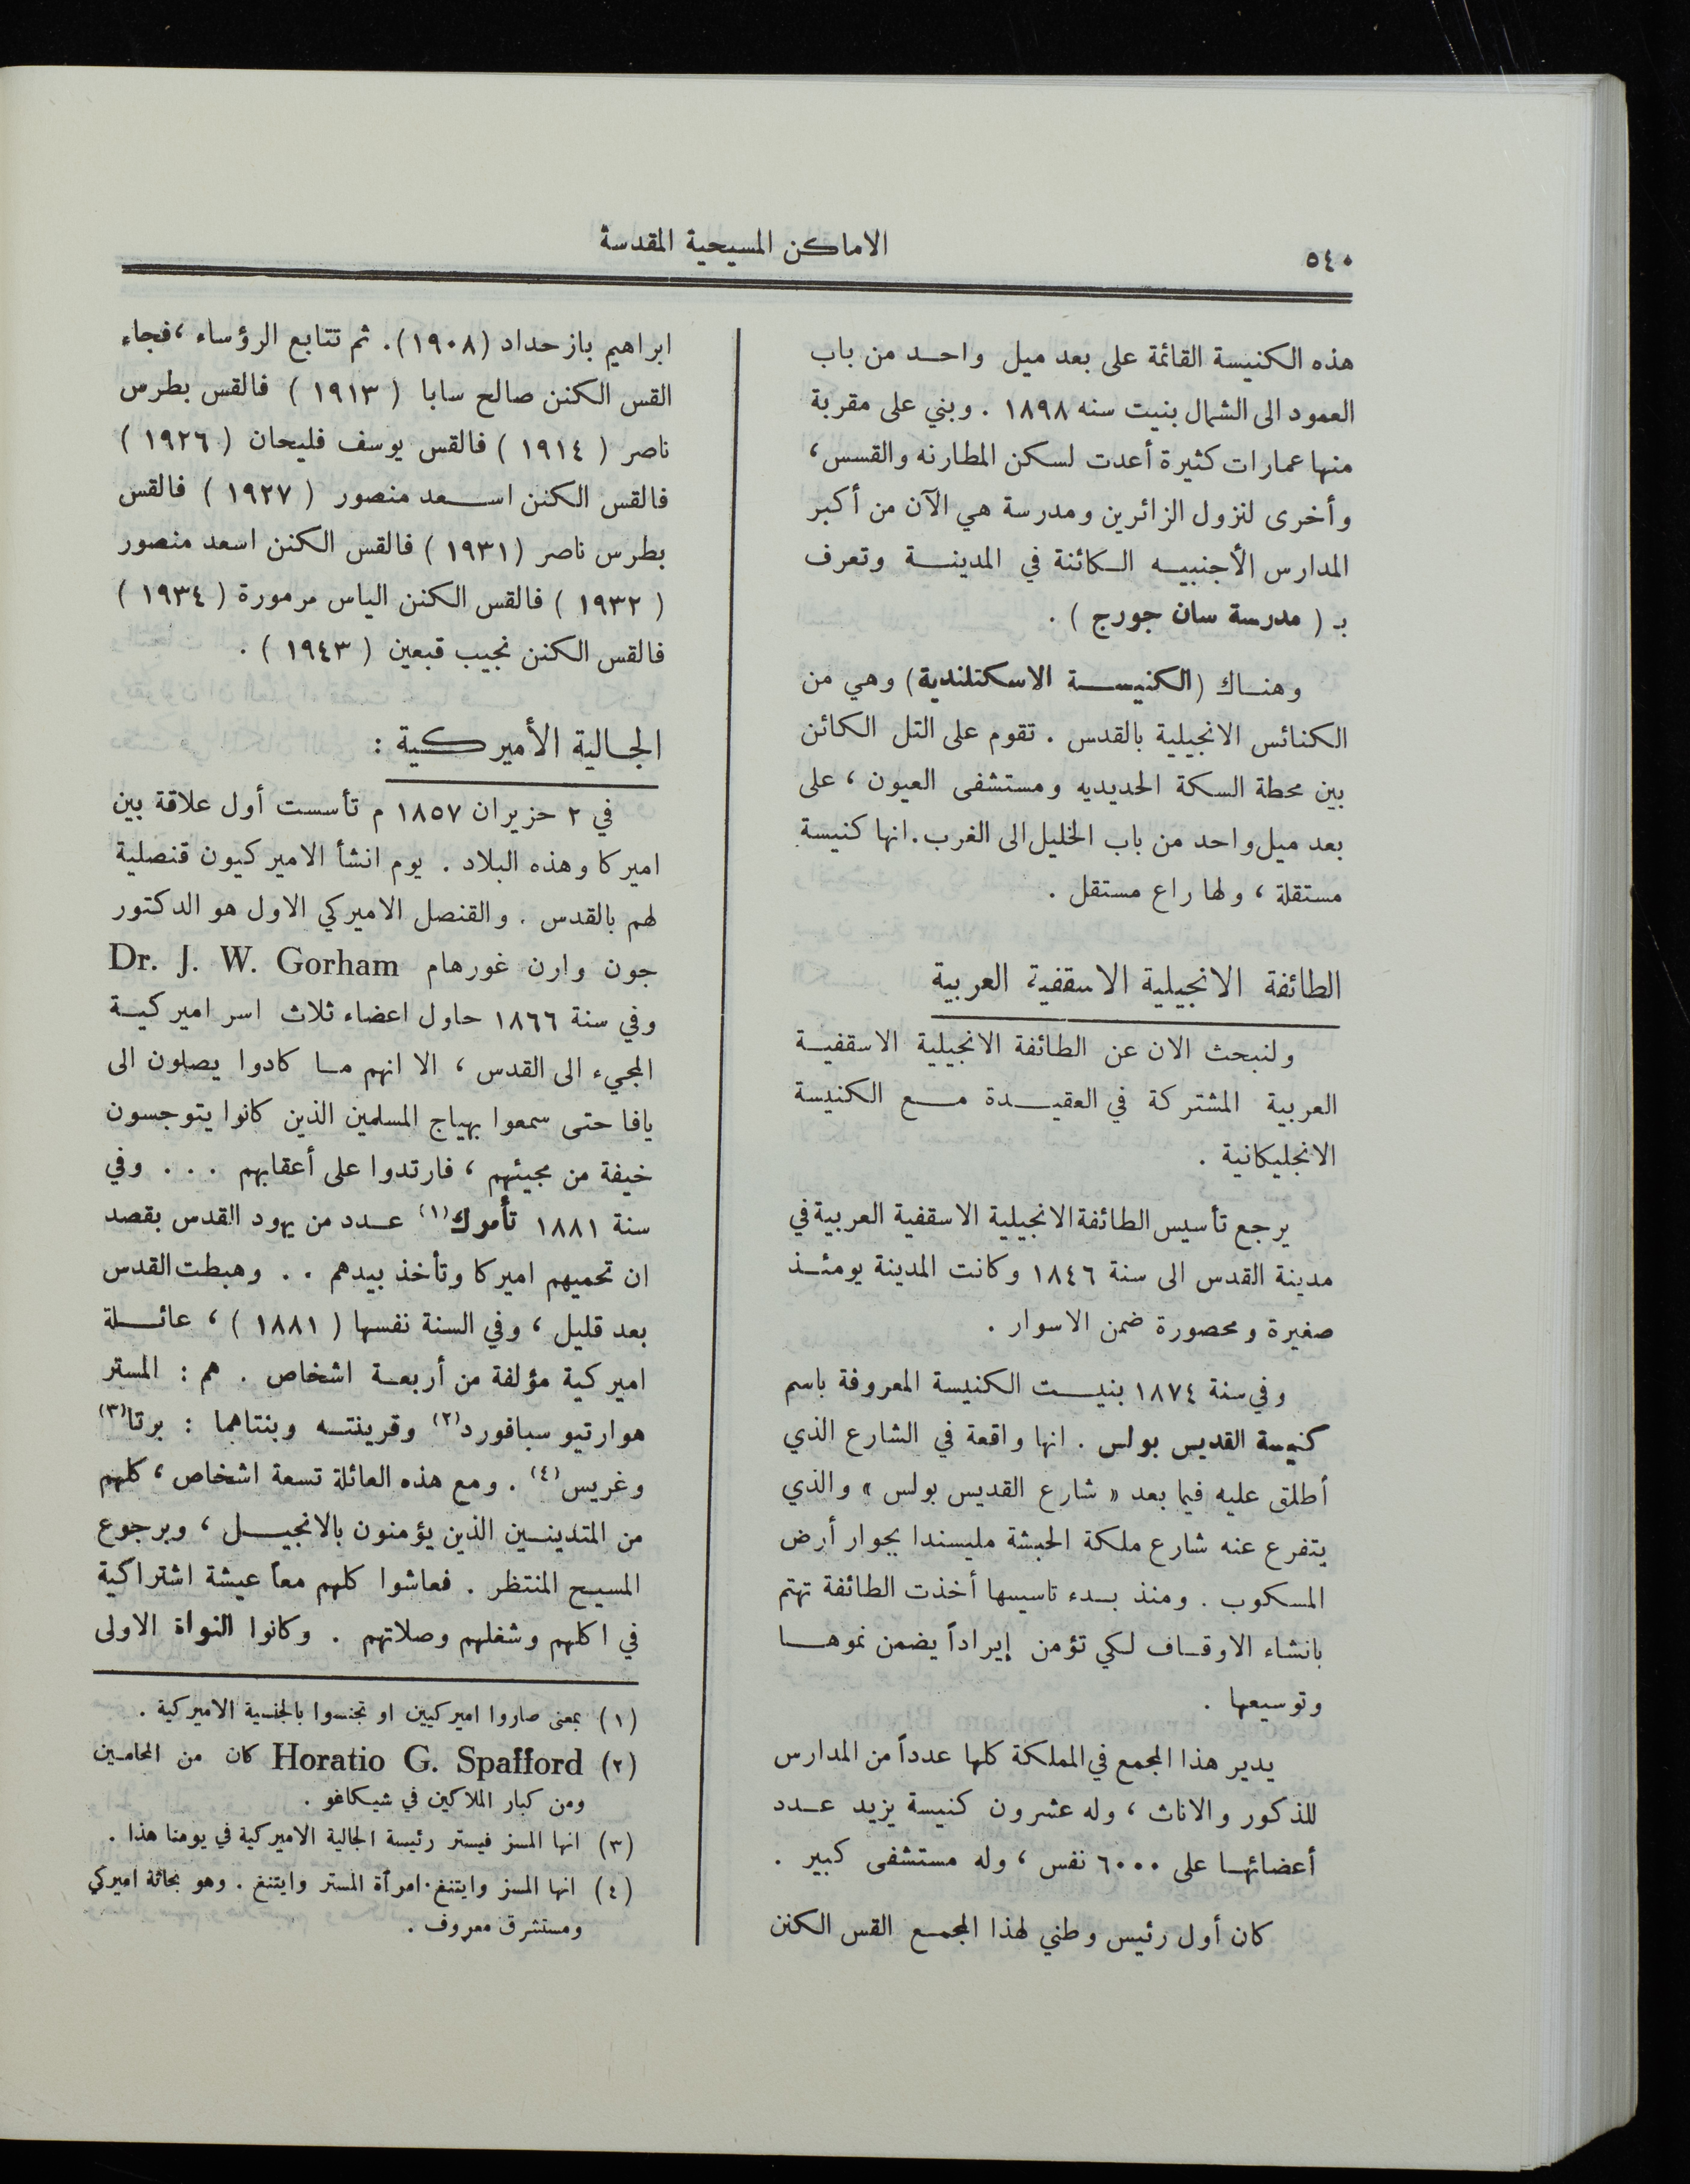 ٥٤٠
الاماكن المسيحية المقدسة
هذه الكنيسة القائمة على بعد ميل واحد من باب
العمود الى الشمال بنيت سنه ١٨٩٨ . وبني على مقربة
منها عمارات كثيرة أعدت لسكن المطارنه والقسس ،
وأخرى لنزول الزائرين ومدرسة هي الآن من أكبر
المدارس الأجنبيه الكائنة في المدينة وتعرف
بـ ( مدرسة سان جورج ) .
وهناك (الكنيسة الاسكتلندية) وهي من
الكنائس الانجيلية بالقدس . تقوم على التل الكائن
بين محطة السكة الحديديه ومستشفى العيون ، على
بعد ميل واحد من باب الخليل الى الغرب . انها كنيسة
مستقلة ، ولها راع مستقل .
الطائفة الانجيلية الاسقفية العربية
ولنبحث الان عن الطائفة الانجيلية الاسقفية
العربية المشتركة في العقيدة مع الكنيسة
الانجليكانية .
يرجع تأسيس الطائفة الانجيلية الاسقفية العربية في
مدينة القدس الى سنة ١٨٤٦ وكانت المدينة يومئذ
صغيرة ومحصورة ضمن الاسوار .
وفي سنة ١٨٧٤ بنيت الكنيسة المعروفة باسم
كنيسة القديس بولس . انها واقعة في الشارع الذي
أطلق عليه فيما بعد « شارع القديس بولس » والذي
يتفرع عنه شارع ملكة الحبشة مليسندا بجوار أرض
المسكوب . ومنذ بدء تاسيسها أخذت الطائفة تهتم
بانشاء الاوقاف لكي تؤمن إيراداً يضمن نموها
وتوسيعها .
يدير هذا المجمع في المملكة كلها عدداً من المدارس
للذكور والاناث ، وله عشرون كنيسة يزيد عدد
أعضائها على ٦٠٠٠ نفس ، وله مستشفى كبير .
كان أول رئيس وطني لهذا المجمع القس الكنن
ابراهيم باز حداد (١٩٠٨). ثم تتابع الرؤساء ، فجاء
القس الكنن صالح سابا ( ١٩١٣ ) فالقس بطرس
ناصر ( ١٩١٤ ) فالقس يوسف فليحان ( ١٩٢٦ )
فالقس الكنن اسعد منصور ( ١٩٢٧ ) فالقس
بطرس ناصر (١٩٣١ ) فالقس الكنن اسعد منصور
( ١٩٣٢ ) فالقس الكنن الياس مرمورة ( ١٩٣٤ )
فالقس الكنن نجيب قبعين ( ١٩٤٣ ) .
الجالية الأميركية :
في ٢ حزيران ١٨٥٧ م تأسست أول علاقة بين
اميركا وهذه البلاد . يوم انشأ الاميركيون قنصلية
لهم بالقدس . والقنصل الاميركي الاول هو الدكتور
جون وارن غورهام Dr. J. W. Gorham
وفي سنة ١٨٦٦ حاول اعضاء ثلاث اسر اميركية
المجيء الى القدس ، الا انهم ما كادوا يصلون الى
يافا حتى سمعوا بهياج المسلمين الذين كانوا يتوجسون
خيفة من مجيئهم ، فارتدوا على أعقابهم . . . وفي
سنة ١٨٨١ تأمرك(١) عدد من يهود القدس بقصد
ان تحميهم اميركا وتأخذ بيدهم . . وهبطت القدس
بعد قليل ، وفي السنة نفسها ( ١٨٨١ ) ، عائلة
اميركية مؤلفة من أربعة اشخاص . هم : المستر
هوارتيو سبافورد(٢) وقرينته وبنتاهما : برتا(٣)
وغريس(٤) . ومع هذه العائلة تسعة اشخاص ، كلهم
من المتدينين الذين يؤمنون بالانجيل ، وبرجوع
المسيح المنتظر . فعاشوا كلهم معاً عيشة اشتراكية
في اكلهم وشغلهم وصلاتهم . وكانوا النواة الاولى
(١) بمعنى صاروا اميركيين او تجنسوا بالجنسية الاميركية .
(٢) Horatio G. Spafford كان من المحامين
ومن كبار الملاكين في شيكاغو .
(٣) انها المسز فيستر رئيسة الجالية الاميركية في يومنا هذا .
(٤) انها المسز وايتنغ . امرأة المستر وايتنغ . وهو بحاثة اميركي
ومستشرق معروف .